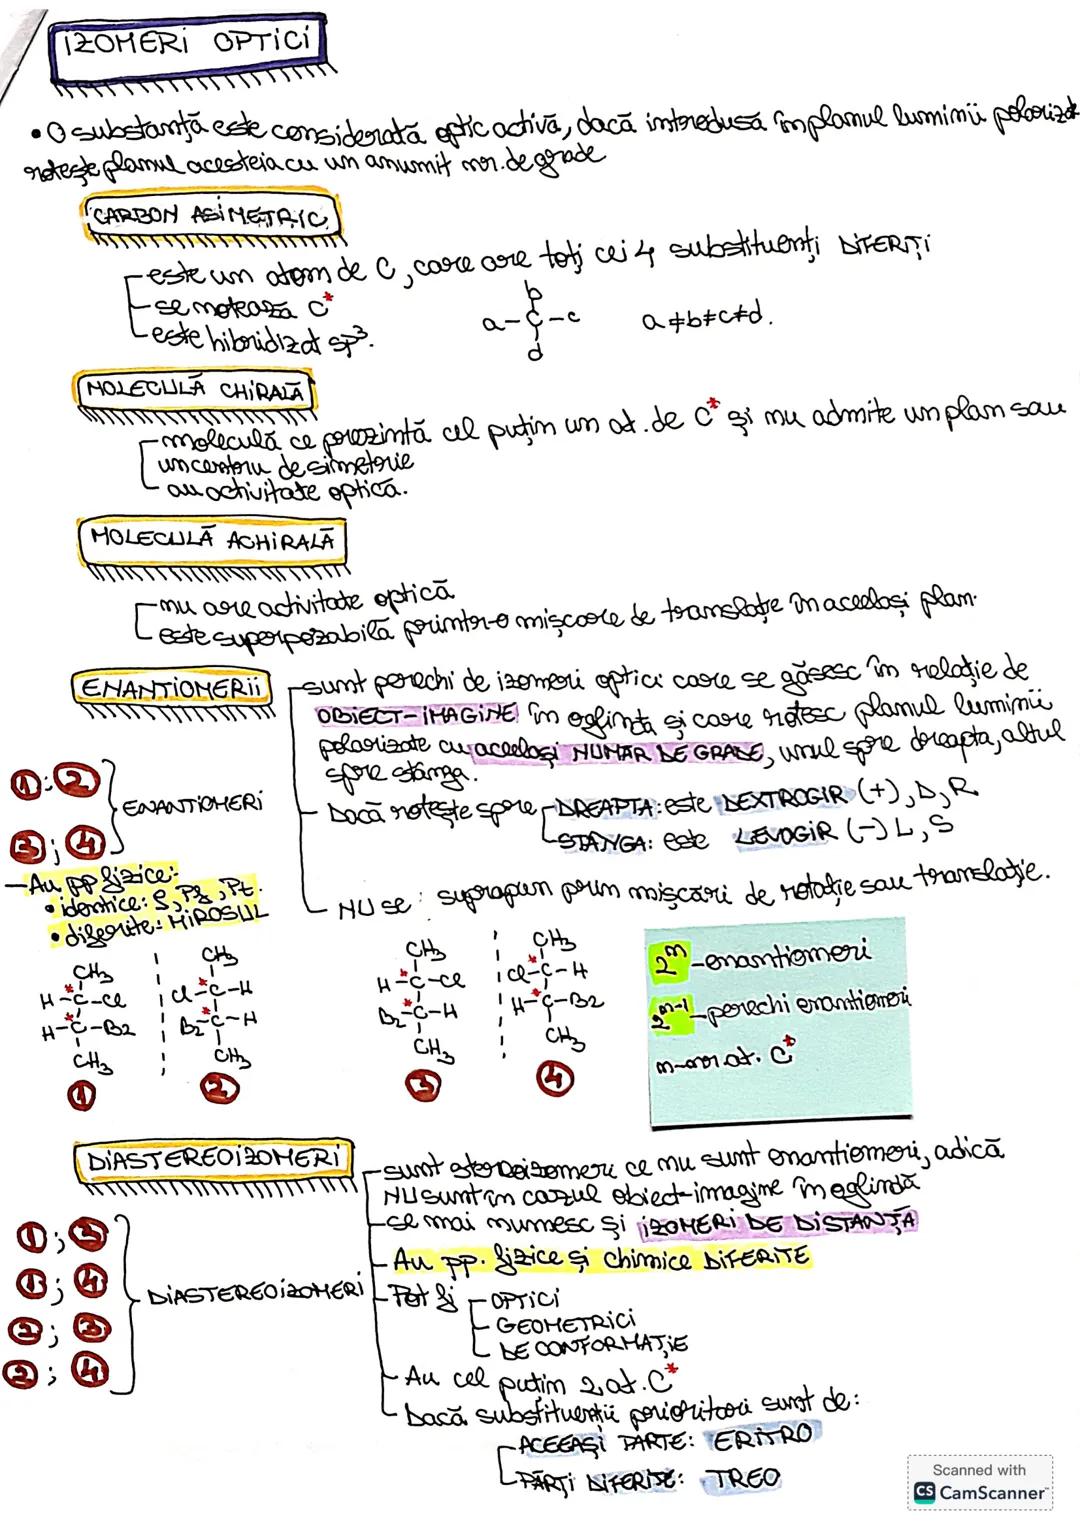 IZOMERI OPTICI
• O substanță este considerată optic activă, dacă introdusă în planul luminii polarizat
rotește planul acesteia cu un anumit nr. de grade
CARBON ASIMETRIC
- este un atom de C, care are toți cei 4 substituenți DIFERIȚI
- se notează C*
- este hibridizat sp³.
b
a-C-c
d
a≠b≠c≠d.
MOLECULĂ CHIRALĂ
- moleculă ce prezintă cel puțin un at. de C* și nu admite un plan sau
un centru de simetrie
- au activitate optică.
MOLECULĂ ACHIRALĂ
- nu are activitate optică
- este superpozabilă printr-o mișcare de translație în același plan.
ENANTIOMERII
- sunt perechi de izomeri optici care se găsesc în relație de
OBIECT-IMAGINE în oglindă și care rotesc planul luminii
polarizate cu același NUMĂR DE GRADE, unul spre dreapta, altul
spre stânga.
- Dacă rotește spre - DREAPTA: este DEXTROGIR (+), D, R
- STÂNGA: este LEVOGIR (-) L, S
- NU se suprapun prin mișcări de rotație sau translație.
1; 2
3; 4
ENANTIOMERI
- Au pp fizice:
• identice: ρ, Pf, Pt.
• diferite: MIROSUL
CH₃ CH₃ CH₃ CH₃
H-C*-Cl Cl-C*-H H-C*-Cl Cl-C*-H
H-C*-Br Br-C*-H Br-C*-H H-C*-Br
CH₃ CH₃ CH₃ CH₃
1 2 3 4
2ⁿ - enantiomeri
2ⁿ⁻¹ - perechi enantiomeri
n - nr. at. C*
DIASTEREOIZOMERI
- sunt stereoizomeri ce nu sunt enantiomeri, adică
NU sunt în cazul obiect-imagine în oglindă
- se mai numesc și IZOMERI DE DISTANȚĂ
- Au pp. fizice și chimice DIFERITE
- Pot fi - OPTICI
- GEOMETRICI
- DE CONFORMAȚIE
- Au cel puțin 2 at. C*
- Dacă substituenții prioritari sunt de:
- ACEEAȘI PARTE: ERITRO
- PĂRȚI DIFERITE: TREO
1; 3
1; 4
2; 3
2; 4
DIASTEREOIZOMERI
Scanned with
CS CamScanner